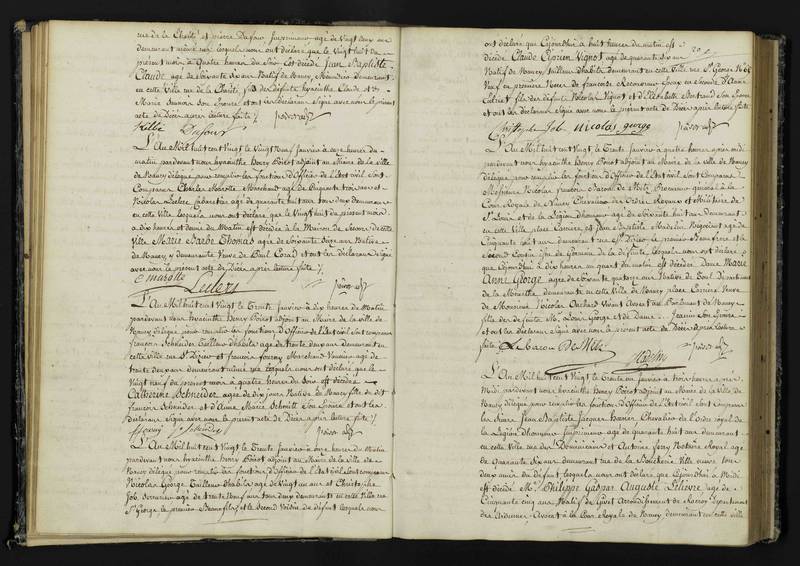 rue de la Charité et pierre Dufour Imprimeur agé de Vingt deux ans
demeurant même rue lesquels nous ont déclaré que le Vingt huit du
présent mois à Quatre heures du Soir Est décédé Jean Baptiste
Claude agé de Soixante dix ans Natif de Nancy, demeurant
en cette Ville rue de la Charité, fils des défunts hyacinthe Claude et de
Marie Son Epouse et ont les déclarans Signé avec nous le présent
acte de Décès après lecture faite
Dufour
L'An Mil huit cent Vingt le Vingt neuf Janvier à onze heures du
matin pardevant nous hyacinthe henry adjoint au Maire de la ville
de Nancy délégué pour remplir les fonctions d'Officier de l'état civil Sont
Comparus Charles Marotte Marchand agé de Cinquante trois ans et
Nicolas Leclerc, agé de quarante huit ans tous deux demeurant
en cette Ville, lesquels nous ont déclaré que le Vingt huit du présent mois
à dix heures et demi du Matin est décédée à la Maison de Secours de cette
Ville Marie Barbe Thomas agée de Soixante Seize ans Native
de Nancy y demeurante Veuve de Paul et ont les déclarans Signé
avec nous le présent acte de Décès après lecture faite
C marotte
Leclerc
L'An Mil huit cent Vingt le Trente Janvier à dix heures du Matin
pardevant nous hyacinthe henry adjoint au Maire de la ville de
Nancy délégué pour remplir les fonctions d'Officier de l'état civil Sont comparus
françois Schneider Tailleur d'habits agé de trente deux ans demeurant en
cette ville rue St Dizier et françois Marchand agé de
trente deux ans demeurant même rue lesquels nous ont déclaré que le
Vingt neuf du présent mois à quatre heures du Soir est décédée
Catherine Schneider agée de dix jours Native de Nancy fille de dit
françois Schneider et d'Anne Marie Schmitt Son Epouse et ont les
Déclarans Signé avec nous le présent acte de Décès après lecture faite
L'An Mil huit cent Vingt le Trente Janvier à onze heures du Matin
pardevant nous hyacinthe henry adjoint au Maire de la ville de
Nancy délégué pour remplir les fonctions d'Officier de l'état civil Sont comparus
Nicolas George Tailleur d'habits agé de Vingt un ans et Christophe
Job Serrurier agé de trente neuf ans tous deux demeurants en cette Ville rue
St George, le premier Beaufils et le second Voisin du défunt lesquels nous
ont déclaré que Cejourd'hui à huit heures du matin est
décédé Claude Ciprien Vignot agé de quarante dix ans
Natif de Nancy, tailleur d'habits demeurant en cette Ville rue St George
Veuf en premiere Noces de françoise Epoux en Seconde d'Anne
fils des défunts Nicolas Vignot et d'Elisabeth Bertrand Son Epouse
et ont les déclarans Signé avec nous le présent acte de Décès après lecture faite
Christophe Job nicolas george
L'An Mil huit cent Vingt le Trente Janvier à quatre heures après midi
pardevant nous hyacinthe henry adjoint au Maire de la ville de Nancy
délégué pour remplir les fonctions d'Officier de l'état civil Sont Comparus
Messieurs Nicolas françois Baron de Metz Procureur général à la
Cour Royale de Nancy Chevalier des Ordres Royaux et Militaire de
St Louis et de la Légion d'honneur agé de Soixante huit ans Demeurant
en cette Ville place Carriere, et Jean Baptiste Madelin Négociant agé de
Cinquante huit ans demeurant rue St Dizier, le premier Beaufrere et le
Second Cousin de Germain de la défunte, lesquels nous ont déclaré
que Cejourd'hui à dix heures un quart du matin est décédée Dame Marie
Anne George agée de Soixante quatorze ans Native de Toul Département
de la Meurthe demeurante en cette Ville de Nancy place Carriere Veuve
de Monsieur Nicolas Vivant Avocat au Parlement de Nancy
fille des défunts Mr Louis George et de Dame Son Epouse
et ont les déclarans Signé avec nous le présent acte de Décès après Lecture
faite Le Baron De Metz
Madelin
L'An Mil huit cent Vingt le Trente un Janvier à trois heures après
Midi pardevant nous hyacinthe henry adjoint au Maire de la Ville de
Nancy délégué pour remplir les fonctions d'Officier de l'état civil Sont Comparus
les Sieurs Jean Baptiste Jacques Chevalier de l'Ordre royal de
la Légion d'honneur Imprimeur agé de quarante huit ans demeurant
en cette Ville rue des Dominicains et Antoine Notaire Royal agé
de Quarante Six ans demeurant rue de la Ville vieux, tous
deux amis du défunt lesquels nous ont déclaré que Cejourd'hui à Midi
est décédé Mr Philippe Gaspar Auguste agé de
Cinquante cinq ans Natif de Givet Arrondissement de Rocroy Département
des Ardennes, Avocat à la Cour Royale de Nancy demeurant en cette ville